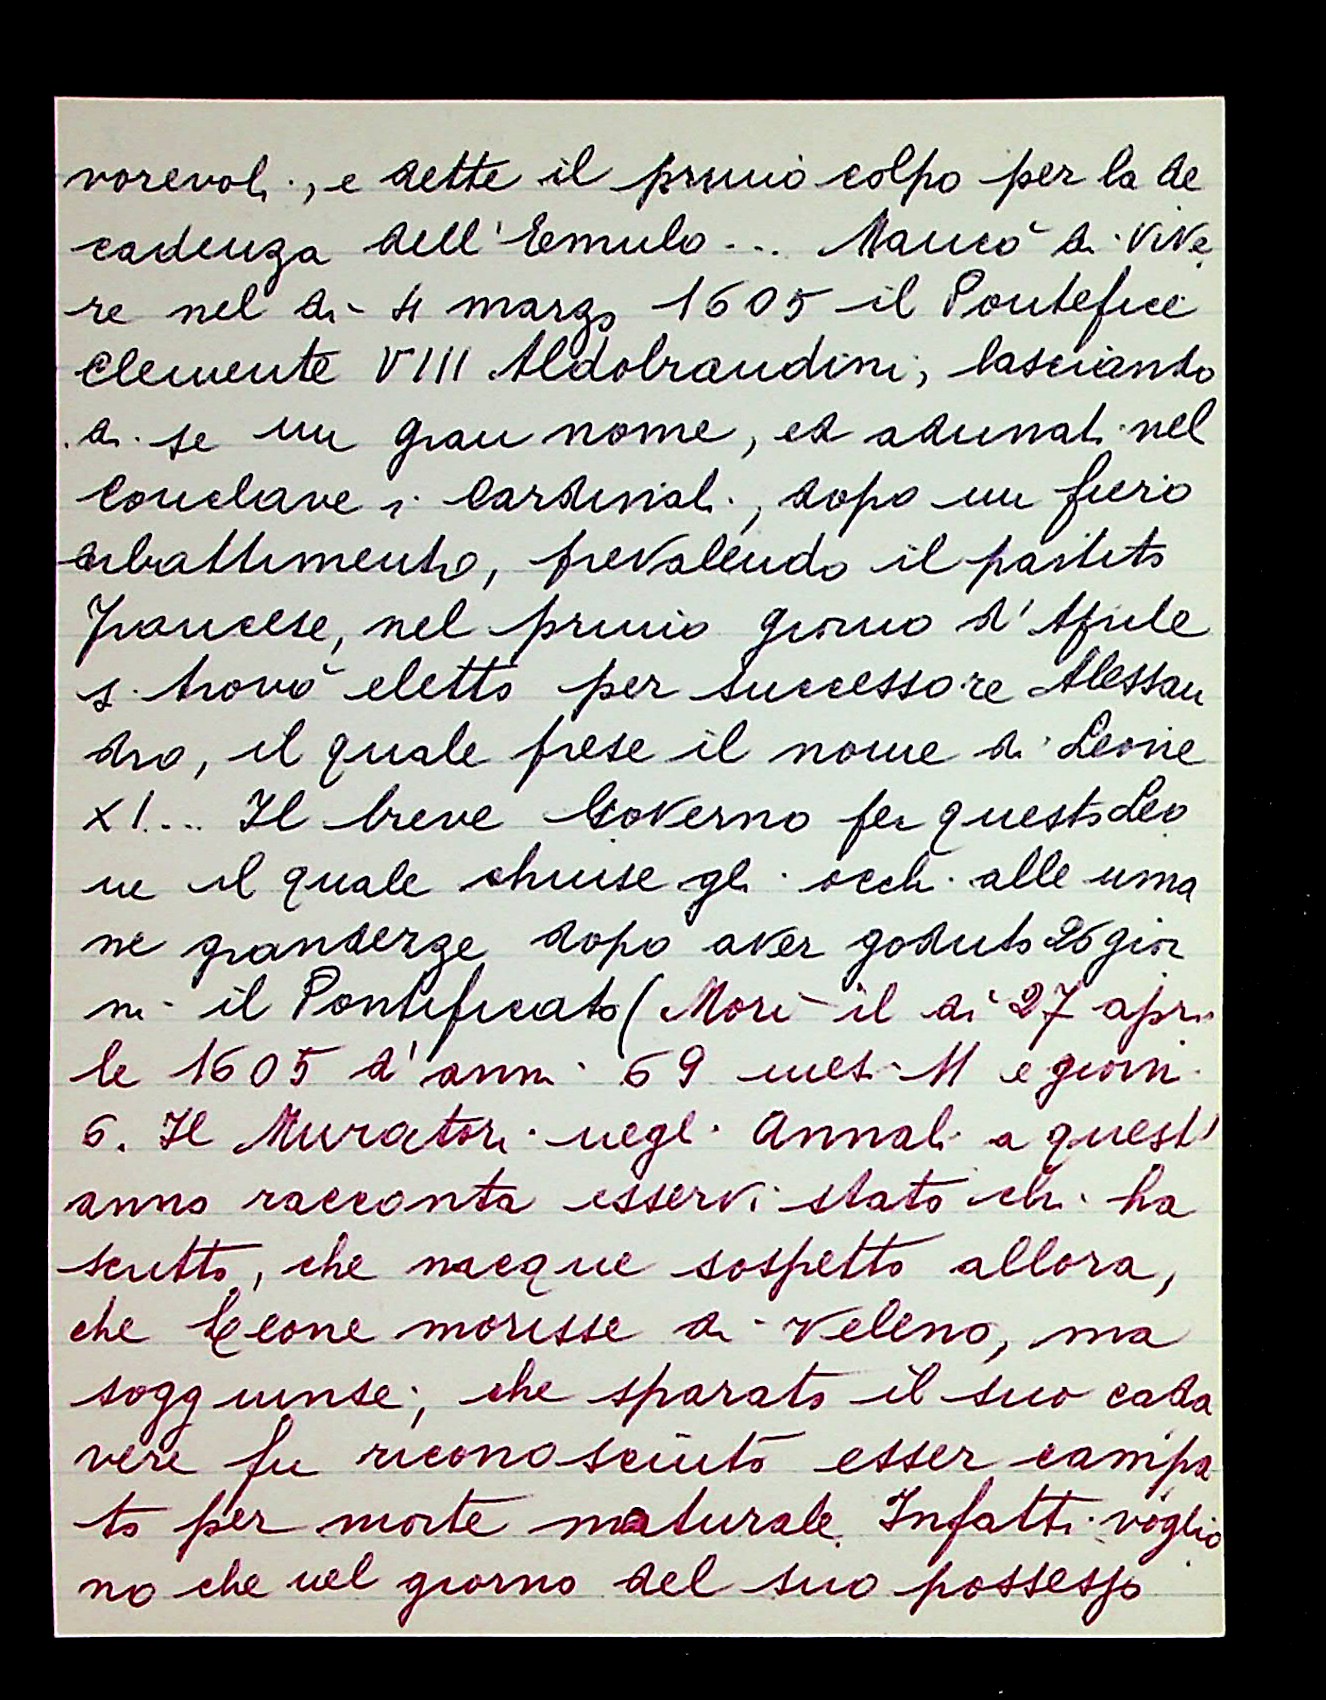 vorevoli, e dette il primo colpo per la de
cadenza dell'Emulo... Mancò di vive
re nel dì 4 marzo 1605 il Pontefice
Clemente VIII Aldobrandini, lasciando
di se un gran nome, ed adunati nel
Conclave i Cardinali, dopo un fiero
dibattimento, prevalendo il partito
Francese, nel primo giorno d'Aprile
si trovò eletto per successore Alessan
dro, il quale prese il nome di Leone
XI... Il breve Governo per questo Leo
ne il quale chiuse gli occhi alle uma
ne grandezze dopo aver goduto 26 gior
ni il Pontificato (Morì il dì 27 apri
le 1605 d'anni 69 mesi 11 e giorni
6. Il Muratori negli Annali a quest'
anno racconta esservi stato chi ha
scritto, che nacque sospetto allora,
che Leone morisse di veleno, ma
soggiunse, che sparato il suo cada
vere fu riconosciuto esser campa
to per morte naturale. Infatti voglio
no che nel giorno del suo possesso